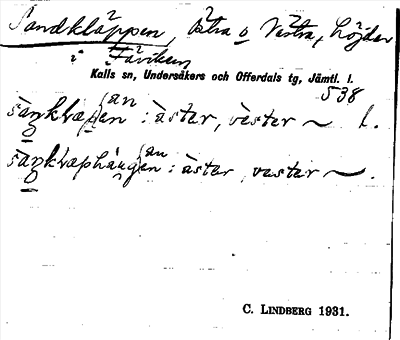 Sandkläppen, Östra o Västra, höjder
i Häviken
Kalls sn, Undersåkers och Offerdals tg, Jämtl. l.
538
an
sàŋklæpen : àstar, vèstar ~ l.
an
sàŋklaphàugen : àstar, vastar ~.
C. LINDBERG 1931.